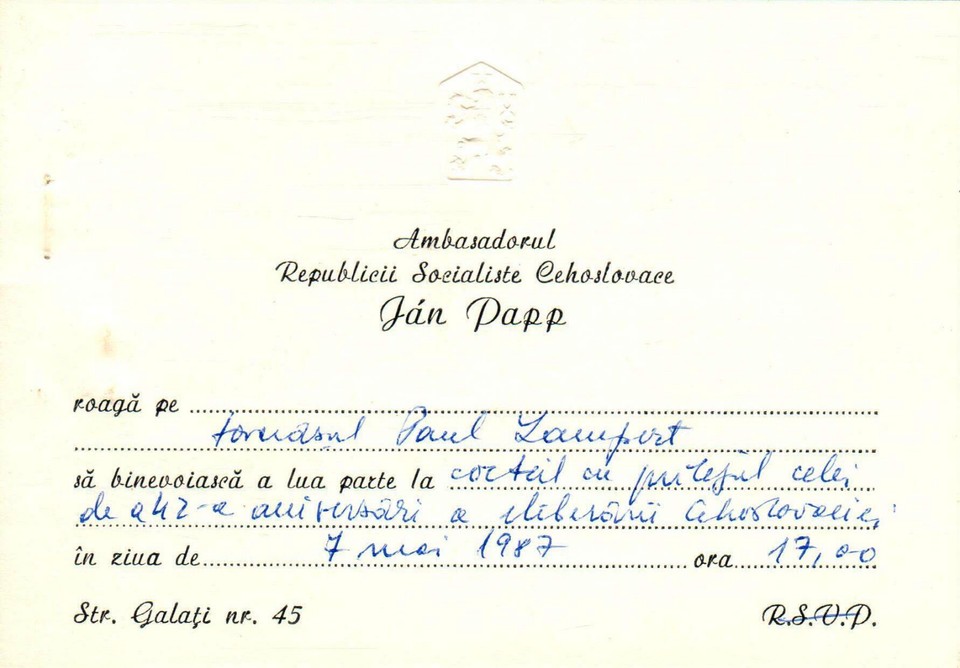 Ambasadorul
Republicii Socialiste Cehoslovace
Ján Papp
roagă pe
tovarășul Paul Lampert
să binevoiască a lua parte la cocteil cu prilejul celei
de a 42-a aniversări a eliberării Cehoslovaciei
în ziua de 7 mai 1987 ora 17,00
Str. Galați nr. 45 R.S.V.P.